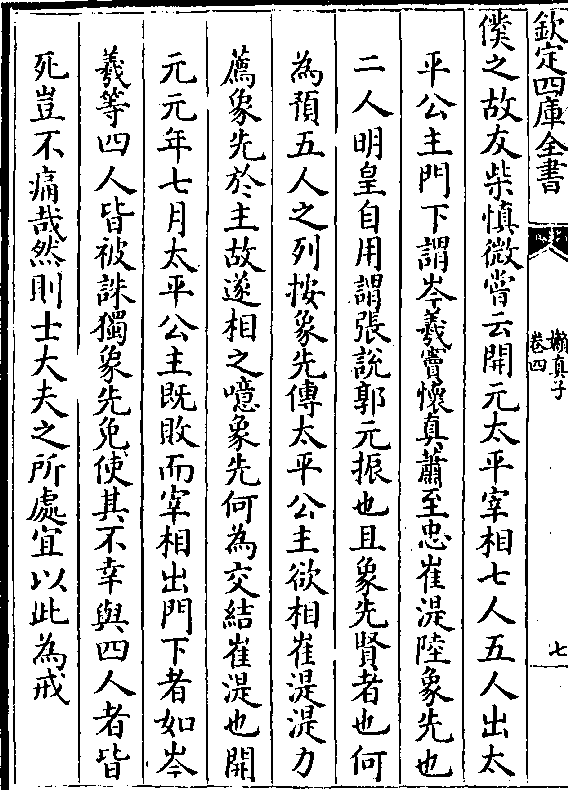 欽定四庫全書
嬾真子
卷四
七
僕之故友柴慎微嘗云開元太平宰相七人五人出太
平公主門下謂岑羲竇懷真蕭至忠崔湜陸象先也
二人明皇自用謂張說郭元振也且象先賢者也何
為預五人之列按象先傳太平公主欲相崔湜湜力
薦象先於主故遂相之噫象先何為交結崔湜也開
元元年七月太平公主既敗而宰相出門下者如岑
羲等四人皆被誅獨象先免使其不幸與四人者皆
死豈不痛哉然則士大夫之所處宜以此為戒